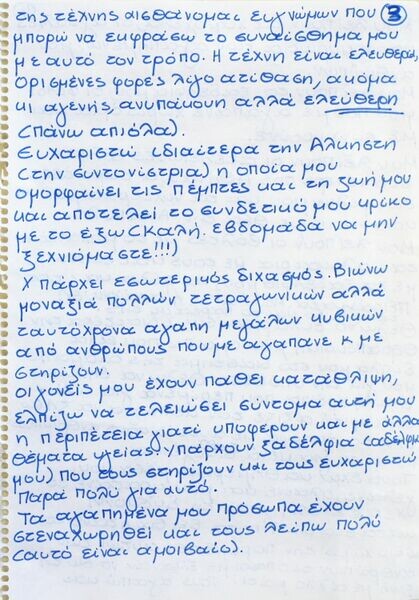 της τέχνης αισθάνομαι ευγνώμων που 3
μπορώ να εκφράσω το συναίσθημα μου
με αυτό τον τρόπο. Η τέχνη είναι ελεύθερη,
ορισμένες φορές λίγο ατίθαση, ακόμα
κι αγενής, ανυπάκουη αλλά ελεύθερη
(πάνω απ'όλα).
Ευχαριστώ ιδιαίτερα την Άλκηστη
(την συντονίστρια) η οποία μου
ομορφαίνει τις Πέμπτες και τη ζωή μου
και αποτελεί το συνδετικό μου κρίκο
με το έξω (Καλή εβδομάδα να μην
ξεχνιόμαστε!!!)
Υπάρχει εσωτερικός διχασμός. Βιώνω
μοναξιά πολλών τετραγωνικών αλλά
ταυτόχρονα αγάπη μεγάλων κυβικών
από ανθρώπους που με αγαπάνε κ με
στηρίζουν.
Οι γονείς μου έχουν πάθει κατάθλιψη,
ελπίζω να τελειώσει σύντομα αυτή μου
η περιπέτεια γιατί υποφέρουν και με άλλα
θέματα υγείας. Υπάρχουν ξαδέλφια (αδέλφια
μου) που τους στηρίζουν και τους ευχαριστώ
πάρα πολύ για αυτό.
Τα αγαπημένα μου πρόσωπα έχουν
στεναχωρηθεί και τους λείπω πολύ
(αυτό είναι αμοιβαίο).